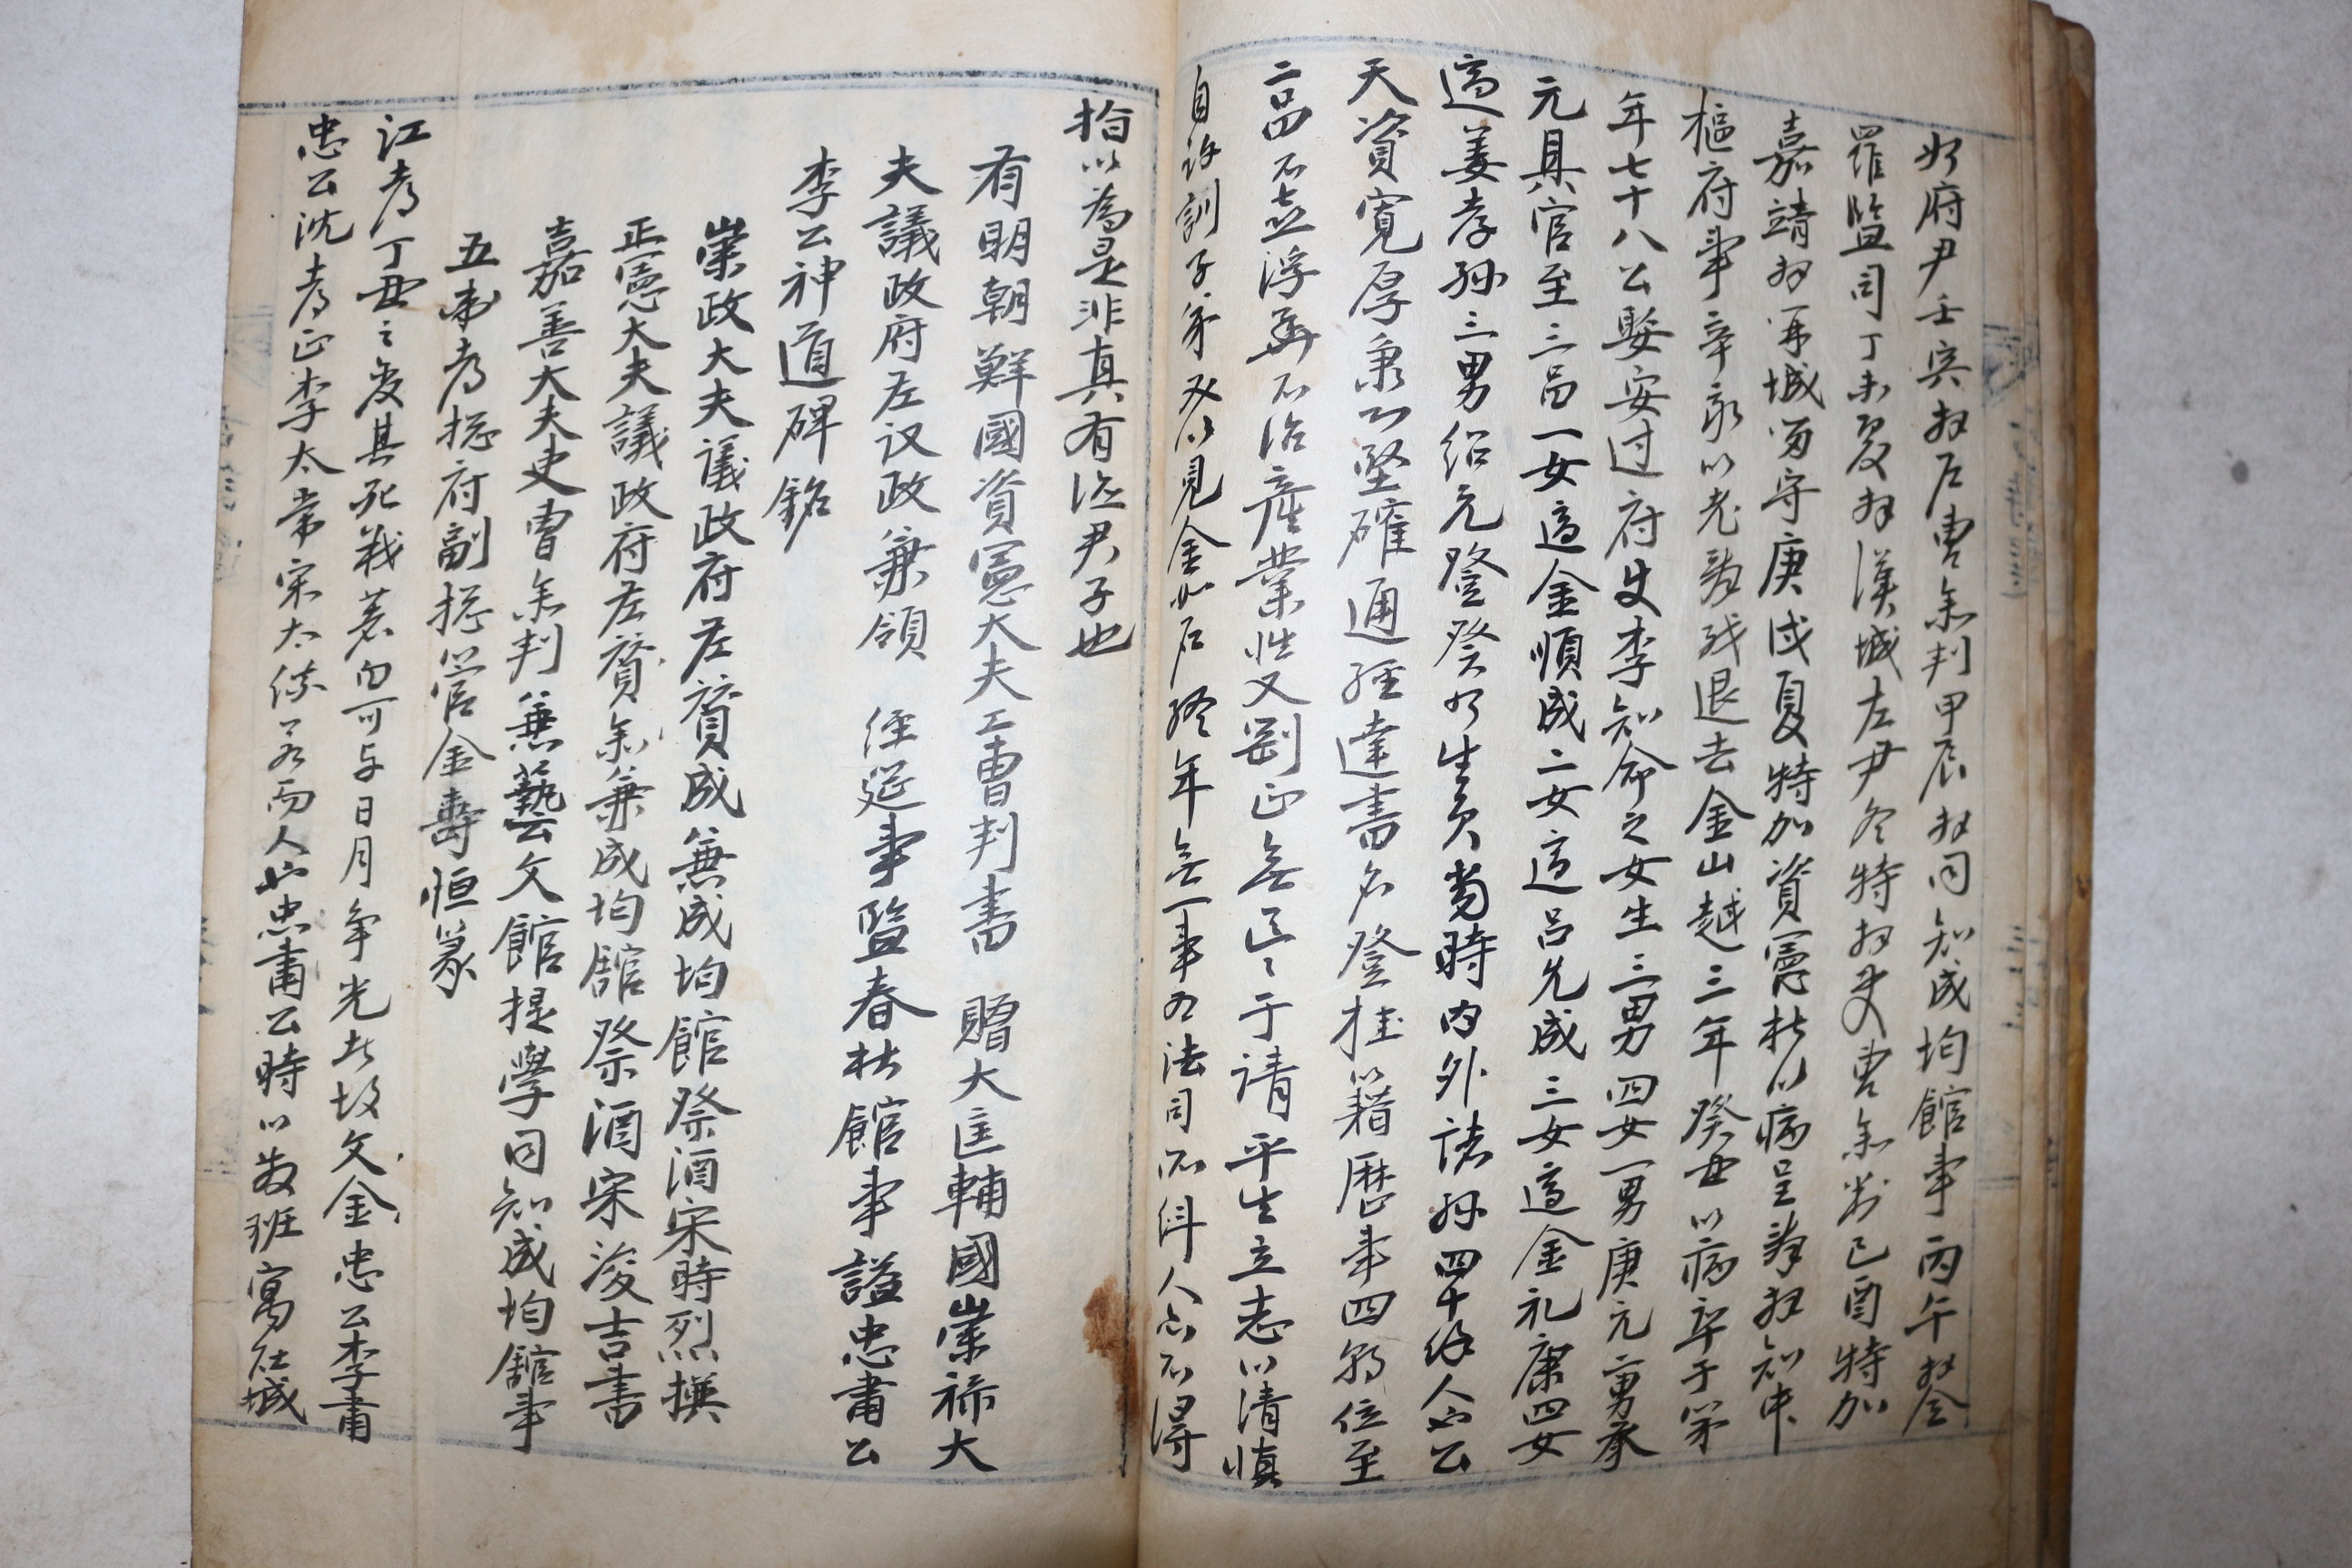 府尹壬寅拜户曹叅判甲辰拜同知成均館事丙午拜全
羅監司丁未夏拜漢城左尹冬特拜吏曹叅判己酉特加
嘉靖拜開城留守庚戌夏特加資憲以病呈辞拜知中
樞府事辛亥以老辞职退去金山越三年癸丑以病卒于第
年七十八公娶安过府使李知命之女生三男四女一男庚元二男承
元具官至三品一女適金順成二女適呂允成三女適金礼康四女
適姜孝孫三男紹元登癸卯生員當時内外諸孫四十餘人公
天資寬厚秉心堅確通經達書名登桂籍歷事四朝位至
二品不喜浮華不治産業性又剛正無干請平生立志以清慎
自許訓子弟又以見金如石終年無一事为法司所糾人亦不得
指以為是非真有治尹子也
有明朝鮮國資憲大夫工曹判書 贈大匡輔國崇祿大
夫議政府左议政兼領 経筵事監春秋館事諡忠肅公
李公神道碑銘
崇政大夫議政府左贊成兼成均館祭酒宋時烈撰
正憲大夫議政府左贊叅兼成均舘祭酒宋浚吉書
嘉善大夫吏曹叅判兼藝文館提學同知成均舘事
五衛都摠府副摠管金壽恒篆
江都丁丑之变其死義者白可与日月争光故文金忠公李肅
忠公沈都正李太常宋太僕若而人忠肅公時以散班寓在城